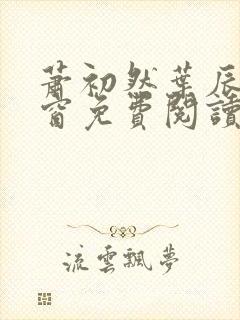 蕭初然葉辰
窗免費閱讀
流雲飄夢